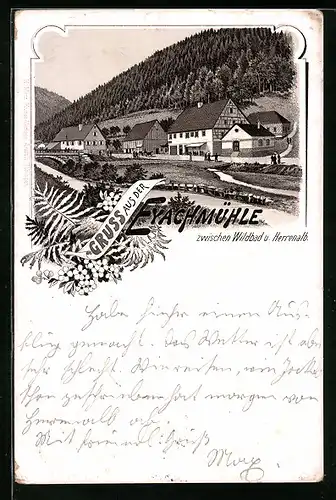 GRUSS AUS DER
EYACHMÜHLE.
zwischen Wildbad u. Herrenalb.
Habe hierher einen Aus-
flug gemacht. Das Wetter ist aber
sehr schlecht. Wir reisen, von
hat morgen von
Herrenalb ab.
Mit freundl. Gruß
Max.